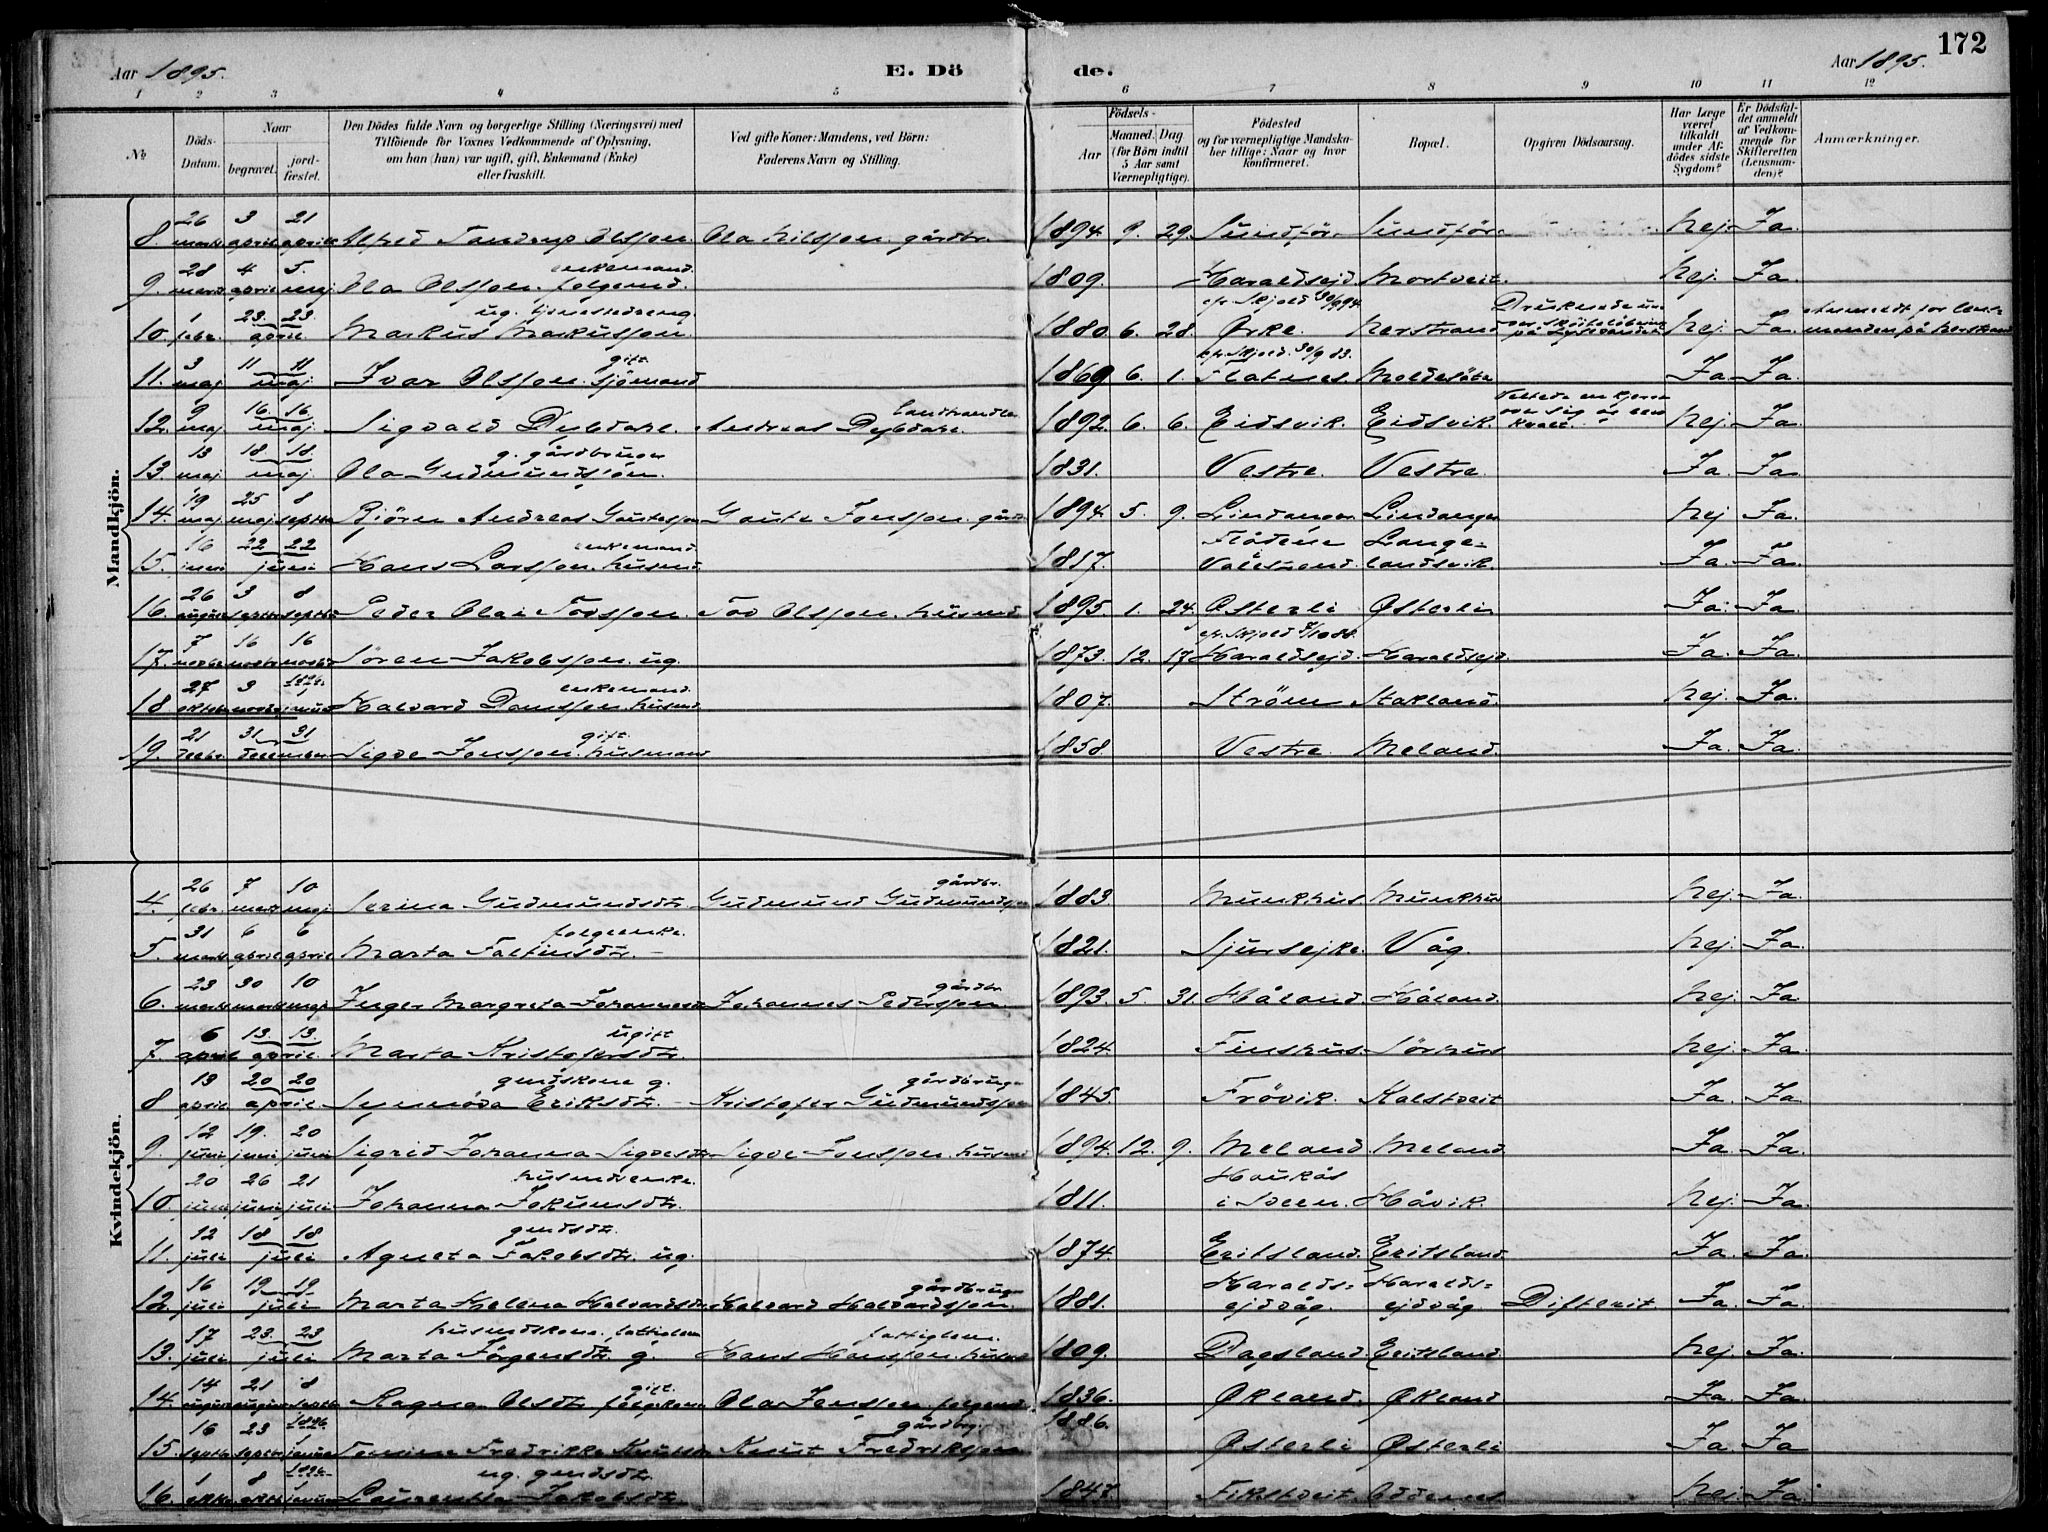 172
Aar 1895.
E. Dö de.
Aar 1895.
1 2 3 4 5 6 7 8 9 10 11 12
№
Döds-Datum.
Naar
begravet.
jord-fæstet.
Den Dödes fulde Navn og borgerlige Stilling (Næringsvei) med
Tilföiende for Voxnes Vedkommende af Oplysning,
om han (hun) var ugift, gift, Enkemand (Enke)
eller fraskilt.
Ved gifte Koner: Mandens, ved Börn:
Faderens Navn og Stilling.
Födsels-
Aar
Maaned. Dag
(for Börn indtil
5 Aar samt
Værnepligtige).
Födested
og for værnepligtige Mandska-
ber tillige: Naar og hvor
konfirmeret.
Bopæl.
Opgiven Dödsaarsag.
Har Læge
været
tilkaldt
under Af-
dödes sidste
Sygdom?
Er Dödsfal-
det anmeldt
af Vedkom-
mende for
Skifteretten
(Lensman-
den)?
Anmærkninger.
Mandkjön.
8. 26 marts 3 april 21 april Alfred Tandrup Olsson. Ola Nilsson. gårdbr. 1894. 9. 29. Sundför. Sundför. Nej. Ja.
9. 28 marts 4 april 5. maj Ola Olsson. enkemand. folgemd. 1809. Haraldsejd. Mortveit. Nej. Ja.
10. 1 febr. 23. 23. april Markus Markusson. ug. tjenestedreng. 1880. 6. 28. Ørke. cfr. Skjold 30/9 94. Nerstrand Nej. Ja. Anmeldt for lens-manden på Nerstrand
11. 3 maj 11 11 maj. Ivar Olsson. gift. sjömand 1869 6. 1. Flatnes. cfr. Skjold. 30/9 83. Moldesäte Ja. Ja.
12. 9 maj 16. 16. maj. Sigvald Dybdahl. Andreas Dybdahl. landhandler 1892. 6. 6. Eidsvik. Eidsvik. Nej. Ja.
13. 13 maj. 18 18. maj. Ola Gudmundsön. g. gårdbruger 1831. Vestre. Vestre. Ja. Ja.
14. 19 maj 25 maj 8 septbr Björn Andreas Gautesson Gaute Jonsson. gårdb. 1894. 5. 9. Lindanger Lindanger Nej Ja.
15. 16 juni 22 22 juni Hans Larsson. enkemand. husmd. 1817. Flådene Vålesund. Lange-landsvik. Ja. Ja.
16. 26 august 3 septbr 8 septbr Peder Olai Torsson. Tor Olsson. husmd. 1895. 1. 24. Østerli Østerli Ja. Ja.
17. 7 novbr 16 novbr 16 novbr Sören Jakobsson. ug. 1873. 12. 17. Haraldsejd. cfr. Skjold 7/10 88. Haraldsejd. Ja. Ja.
18. 27 oktbr 3 novbr 1896. januar Halvard Dansson. enkemand. husmd 1807. Ström Stakland. Nej. Ja.
19. 21 decbr. 31 31 december Sigve Jonsson. gift. husmand 1858. Vestre. Meland. Ja. Ja.
Kvindekjön.
4. 26 febr. 7 marts 10 maj Serina Gudmundsdtr. Gudmund Gudmundsson gårdbr. 1883. Munkhus Munkhus Nej. Ja.
5. 31 marts 6 april 6 april Marta Faltinsdtr. folgeenke. 1821. Sjurseike. Våg. Nej. Ja.
6. 23 marts 30 marts 10 maj Inger Margreta Johannesdtr Johannes Pedersson gårdbr. 1893. 5. 31. Håland. Håland. Nej. Ja.
7. 6 april 13. 13. april. Marta Kristofersdtr. ugift 1824. Finshus. Sörhus Nej. Ja.
8 13 april 20 20 april. Synnöva Eriksdtr. gmdskone g. Kristofer Gudmundsson gårdbruger 1845. Frövik. Kalstveit Ja. Ja
9. 12 juni 19. juni 20 juni Sigrid Johanna Sigvesdtr. Sigve Jonsson. husmd 1894. 12. 9. Meland. Meland. Ja. Ja.
10. 20 juni 26 juni 21 juli Johanna Jokumsdtr. husmdsenke. 1811. Haukås i Sveen. Håvik. Nej. Ja.
11. 12 juli 18 18 juli Agneta Jakobsdtr. ug. gmdsdtr. 1874. Eritsland. Eritsland. Ja. Ja.
12. 16 juli 19 19 juli Marta Helena Halvardsdtr Halvard Halvardsson. gårdbruger 1881. Haralds-ejdvåg. Haralds-ejdvåg Difterit. Ja. Ja.
13. 17 juli 23. 23 juli Marta Jörgensdtr. g. husmdskone. fattiglem Hans Hansson. husmd fattiglem. 1809. Dagsland. Eritsland Nej. Ja.
14. 14 august 21 august 8 septbr Ragna Olsdtr. gift. folgekone Ola Jensson folgemd. 1836. Økland. Økland Ja. Ja.
15. 16 septbr 23 septbr 1896 januar Fredrikke Knutsdtr Knut Fredriksson gårdbrg. 1886. Østerli Østerli Ja. Ja
16. 1 oktbr 8 oktbr 1896. januar Laurentha Jakobsdtr. ug. gmdsdtr. 1847. Fikstveit. Oddenes Nej. Ja.